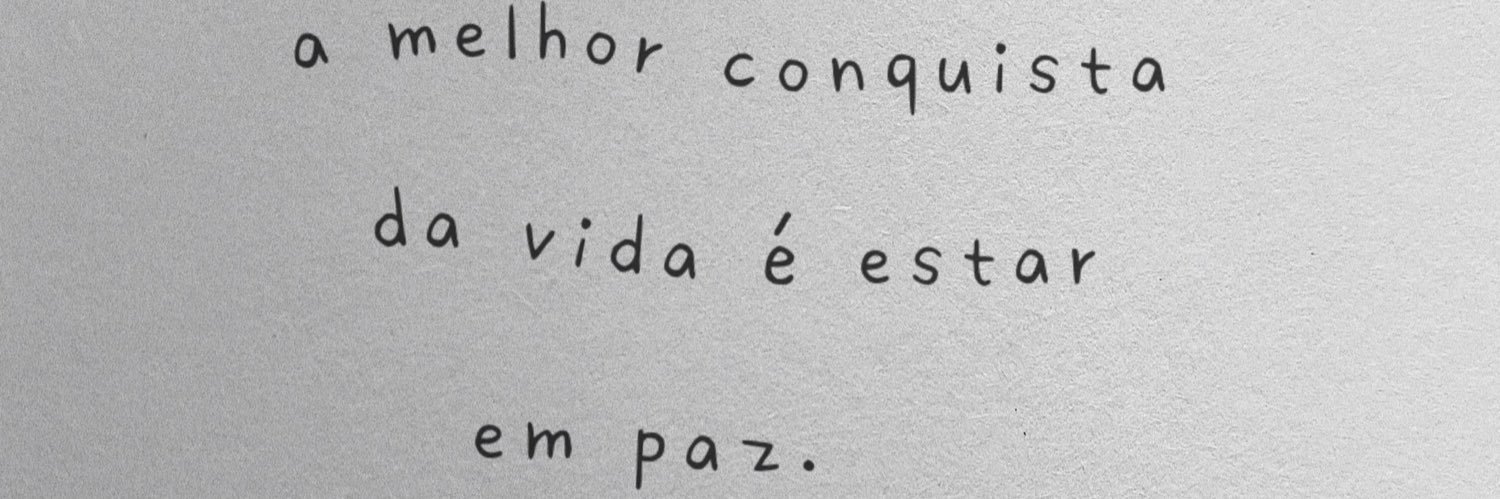 a melhor conquista
da vida é estar
em paz.